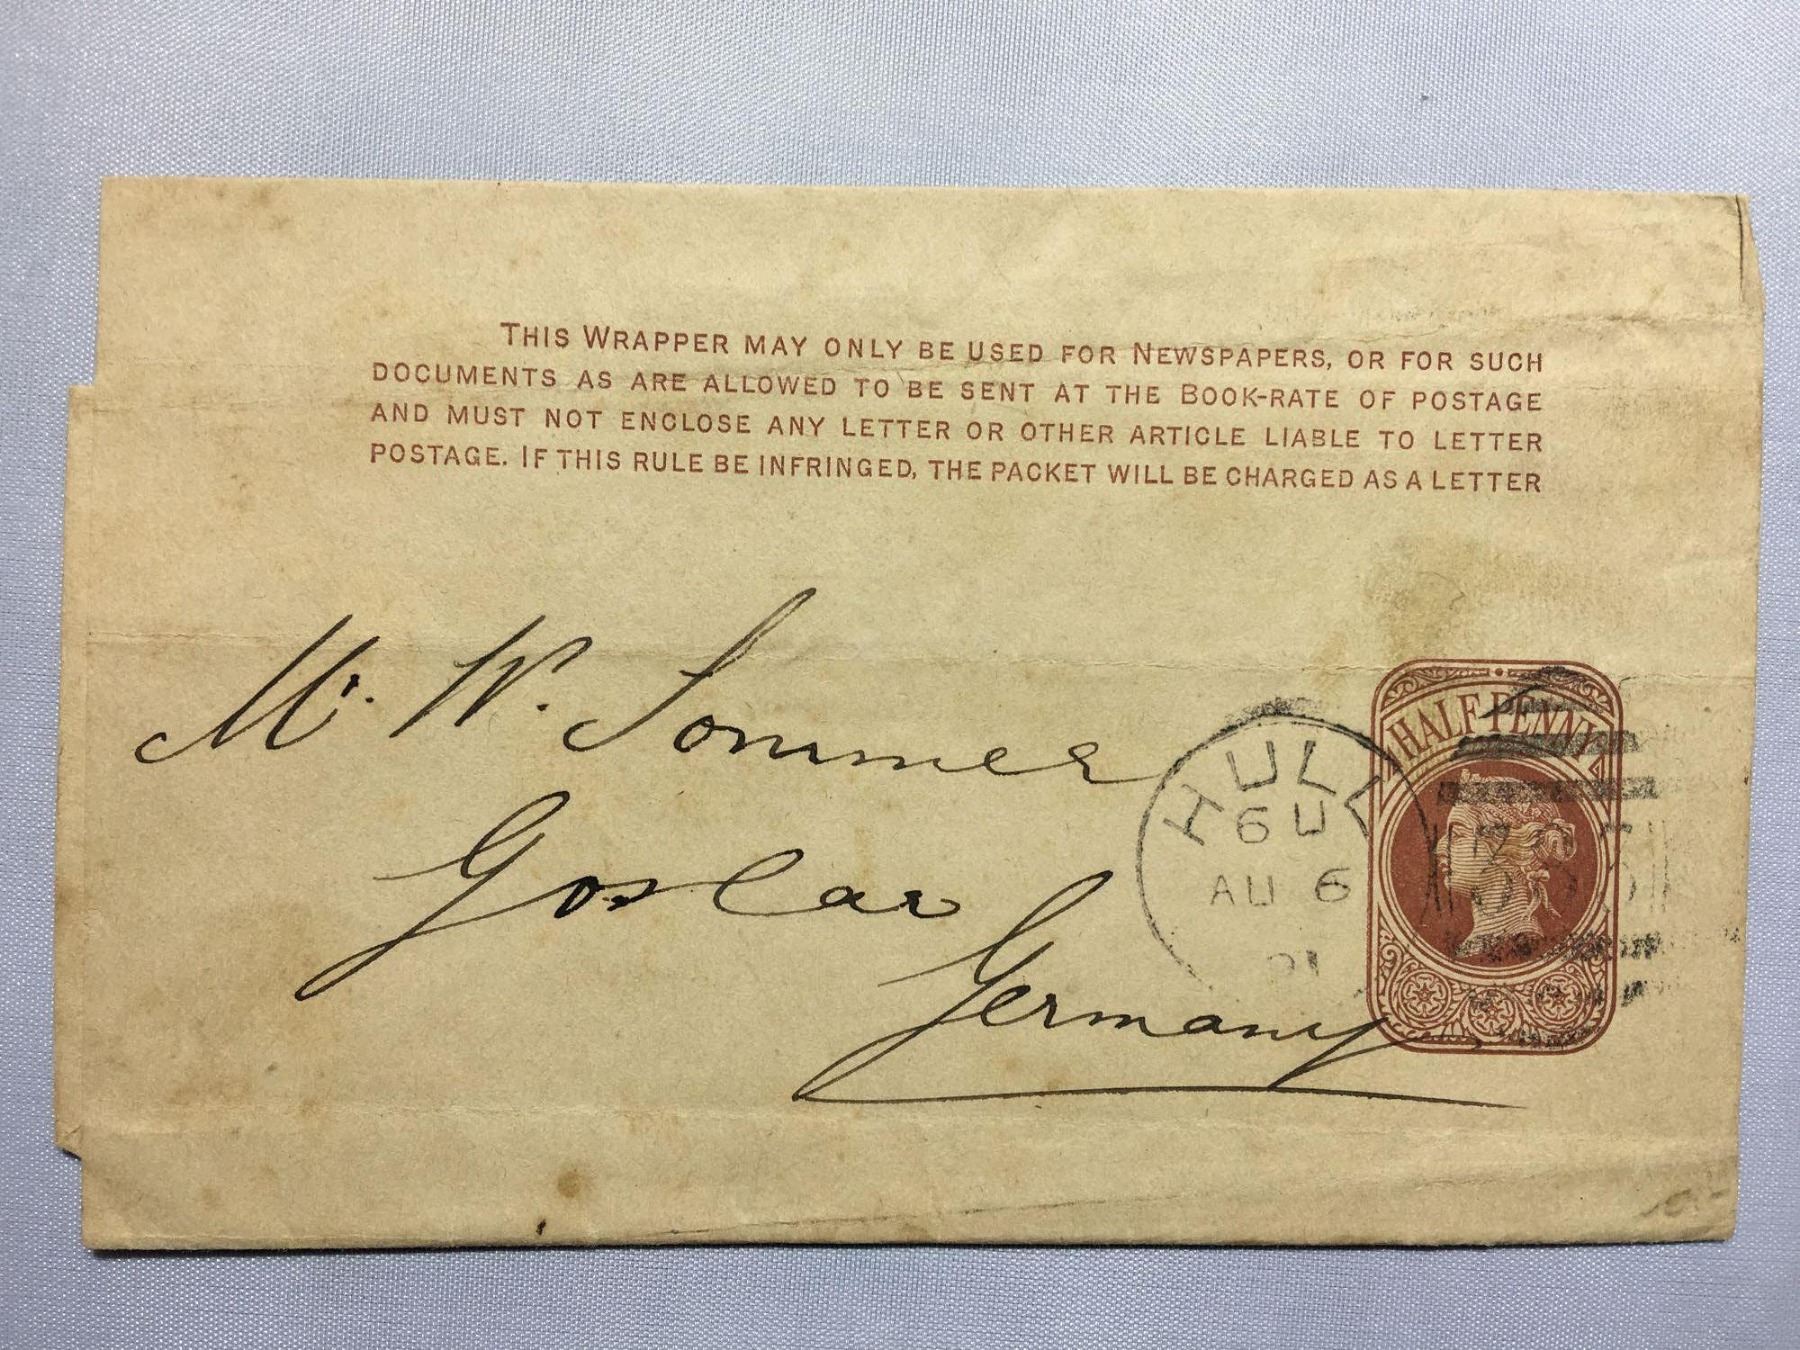 THIS WRAPPER MAY ONLY BE USED FOR NEWSPAPERS, OR FOR SUCH
DOCUMENTS AS ARE ALLOWED TO BE SENT AT THE BOOK-RATE OF POSTAGE
AND MUST NOT ENCLOSE ANY LETTER OR OTHER ARTICLE LIABLE TO LETTER
POSTAGE. IF THIS RULE BE INFRINGED, THE PACKET WILL BE CHARGED AS A LETTER
Mr. W. Sommer
Goslar
Germany
HALFPENNY
HULL
6 U
AU 6
91